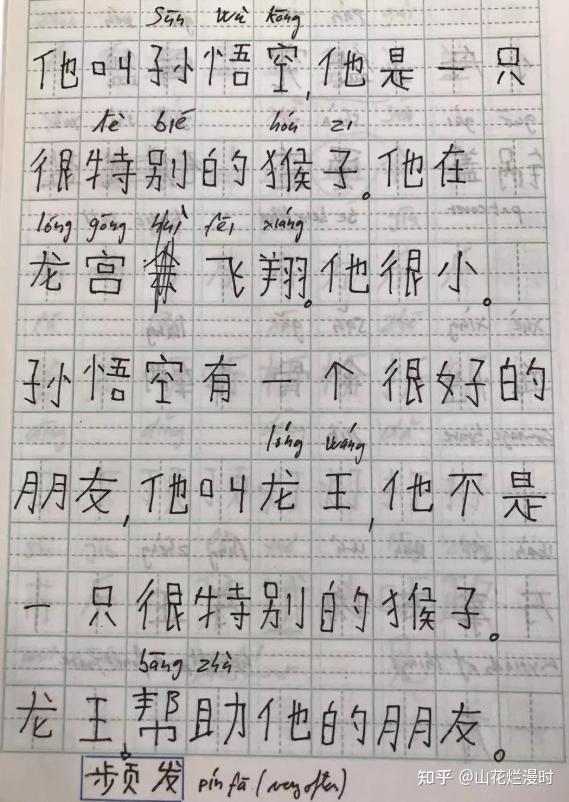 Sūn wù kōng
他叫孙悟空,他是一只
tè bié hóu zi
很特别的猴子。他在
lóng gōng fēi xiáng
龙宫飞翔。他很小。
孙悟空有一个很好的
lóng wáng
朋友,他叫龙王,他不是
一只很特别的猴子。
bāng zhù
龙王帮助他的朋友。
频发 pín fā (very often)
知乎 @山花烂漫时